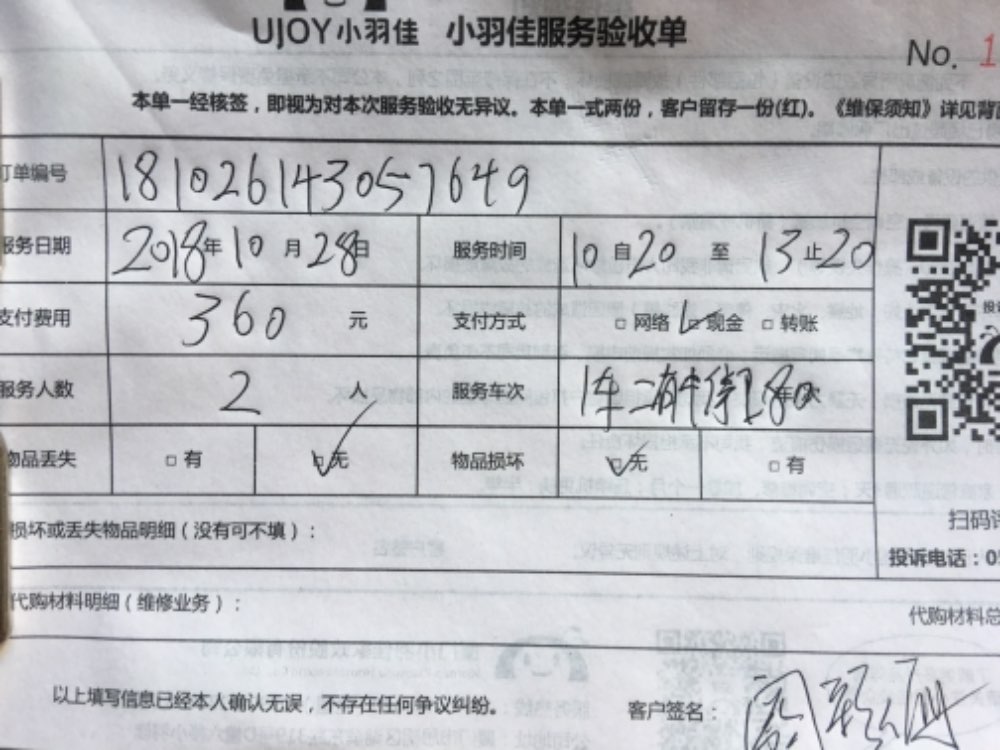 UJOY小羽佳 小羽佳服务验收单
No. 1
本单一经核签，即视为对本次服务验收无异议。本单一式两份，客户留存一份(红)。《维保须知》详见背面
订单编号 181026143057649
服务日期 2018年10月28日 服务时间 10自20至13止20
支付费用 360元 支付方式 □网络 ☑现金 □转账
服务人数 2人 服务车次
物品丢失 □有 ☑无 物品损坏 ☑无 □有
损坏或丢失物品明细（没有可不填）：
扫码
投诉电话：0
代购材料明细（维修业务）：
代购材料总
以上填写信息已经本人确认无误，不存在任何争议纠纷。
客户签名：